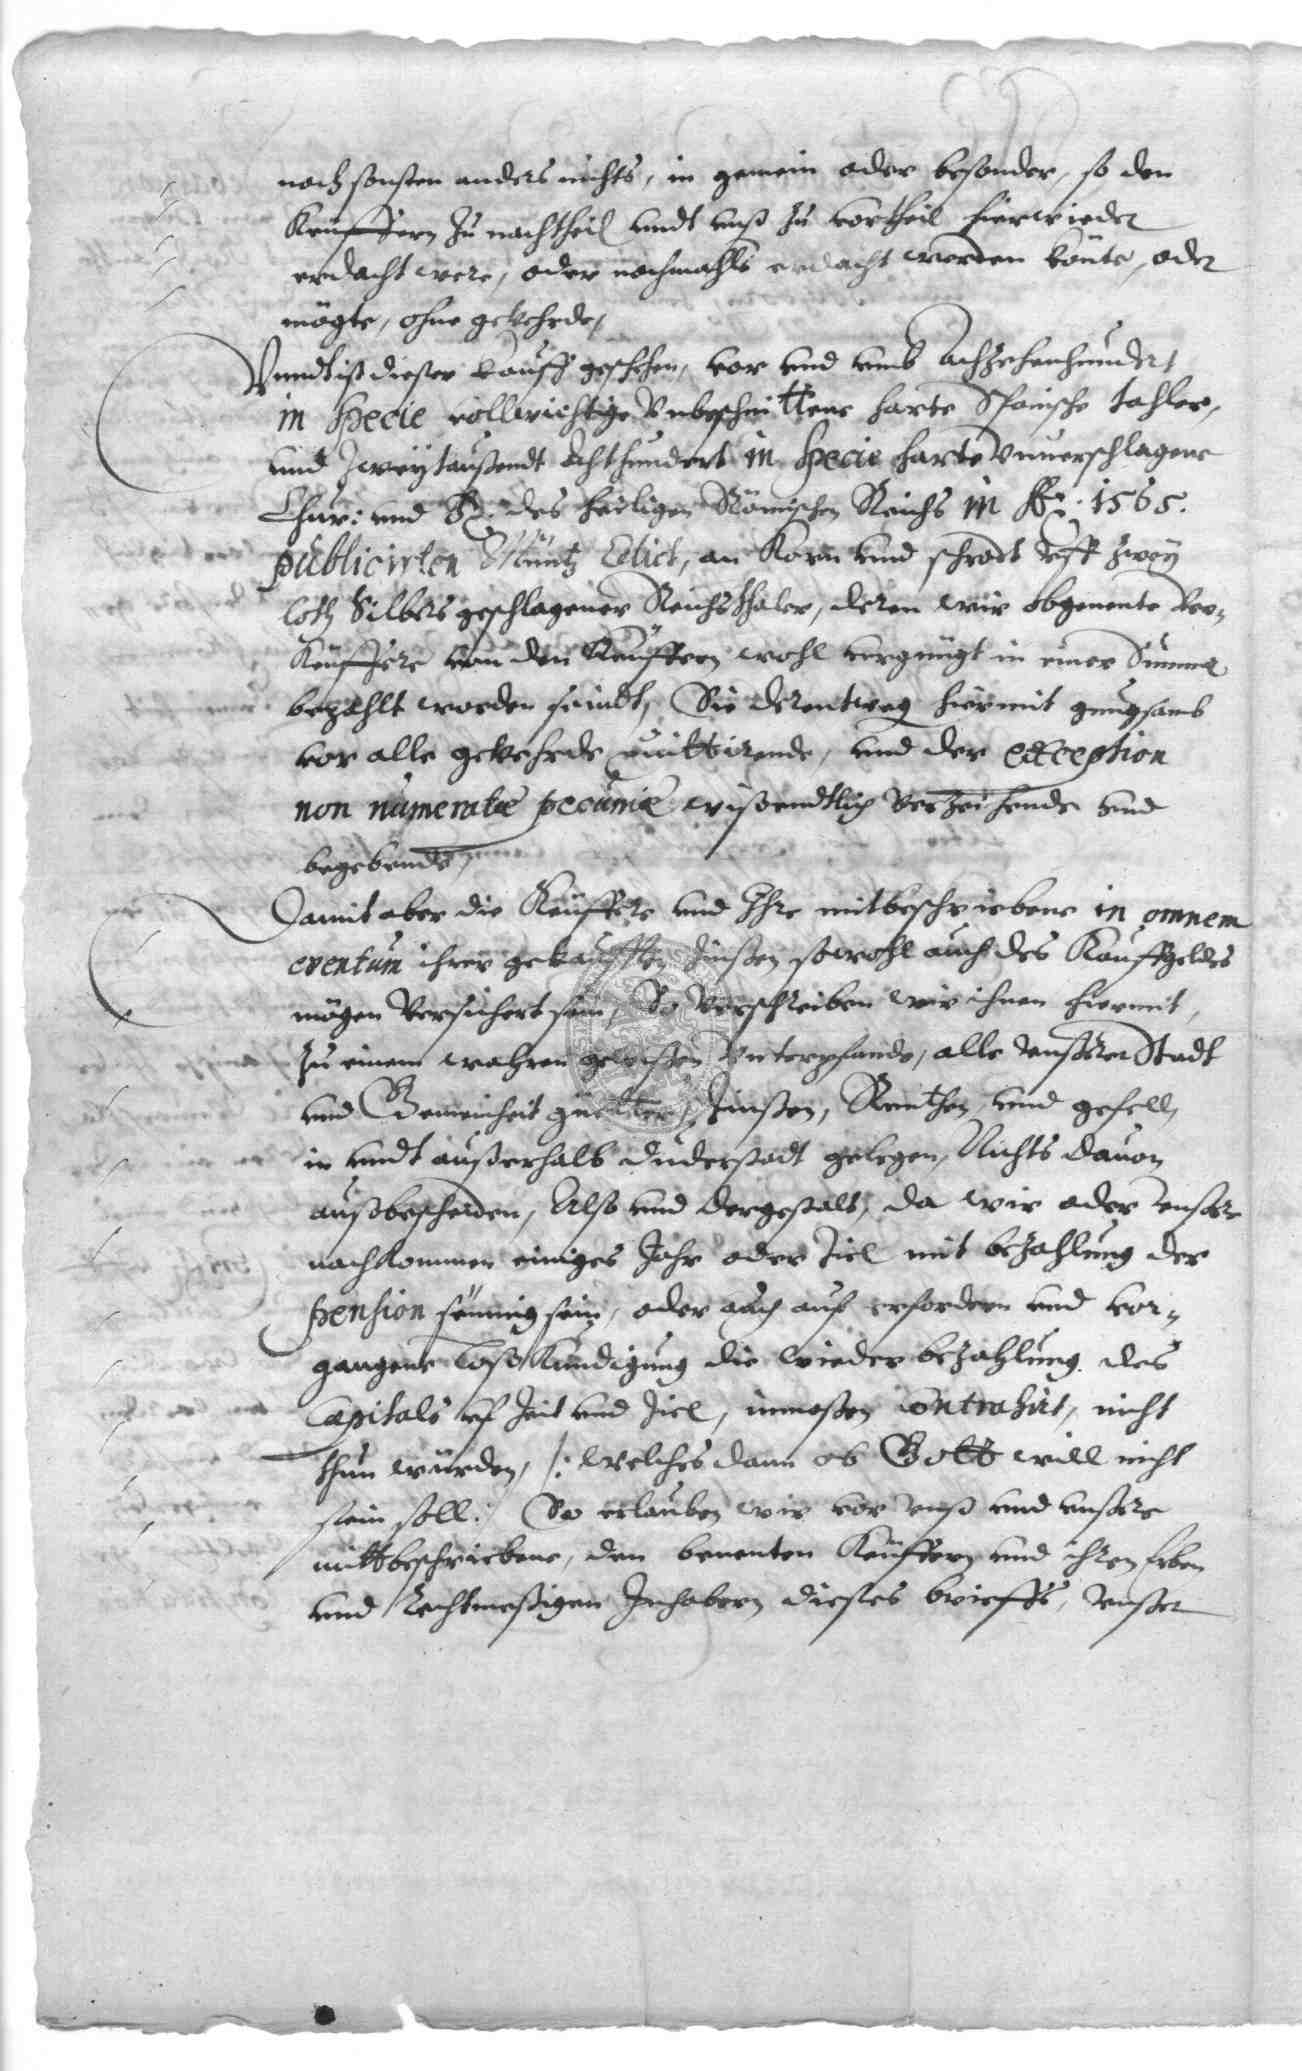 noch sonsten anders nichts, in gemein oder besonder, so den
Keuffern zu nachtheil undt unß zu vortheil hierwieder
erdacht were, oder nochmahls erdacht werden könte, oder
mögte, ohne gefehrde,
Unndt ist dießer kauff geschehen, vor und umb Achzehenhundert
in specie vollwichtige Unbeschnittene harte Spanische tahler,
und Zweytaußendt Achthundert in specie harte Unverschlagene
Chur: und des heiligen Römischen Reichs in 1565.
publicirten Müntz Edict, an Korn und schrodt uff zwey
loth Silbers geschlagener Reichsthaler, deren wir obgenente Ver-
Keuffere von den Keuffern wohl vergnügt in einer Summa
bezahlt worden seindt, Sie derentweg hiermit gnugsamb
vor alle gefehrde quittirende, und der exception
non numeratæ pecuniæ wißendtlich Verzeihende und
begebende,
Damit aber die Keuffere und Ihre mitbeschriebene in omnem
eventum ihrer gekaufften Zinßen sowohl auch des Kauffgeldes
mögen Versichert sein, So Verschreiben wir ihnen hiermit,
zu einem wahren gewißen Unterpfande, alle unßerer Stadt
und Gemeinheit güetter, Zinßen, Renthen, und gefell,
in undt außerhalb Duderstadt gelegen, Nichts davon
außbescheiden, Also und dergestalt, da wir oder unßere
nachkommen einiges Jahr oder Ziel mit bezahlung der
pension seumig sein, oder auch auf erfordern und vor-
gangene Loßkündigung die wieder bezahlung des
Capitals uf Zeit und Ziel, inmaßen contrahirt, nicht
thun würden, /: welches dann ob Gott will nicht
sein soll :/ So erlauben wir vor unß und unßere
mittbeschriebene, den benenten Keuffern und ihren Erben
und rechtmeßigen Inhabern dießes brieffs, unßer